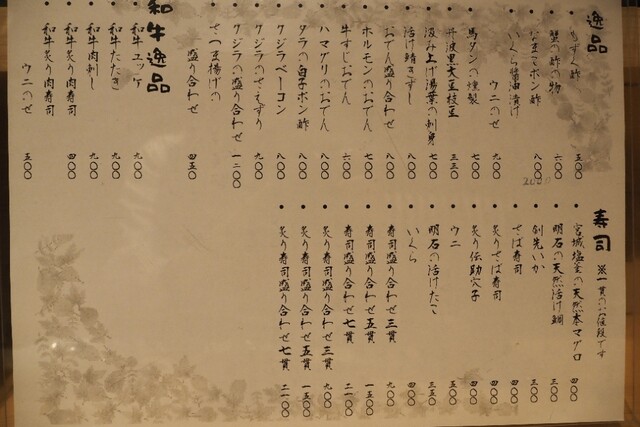 逸品
もずく酢 五〇〇
蟹の酢の物 六〇〇
なまこポン酢 八〇〇
いくら醤油漬け
ウニのせ 九〇〇
馬タンの燻製 七〇〇
丹波黒大豆枝豆 三三〇
汲み上げ湯葉の刺身 七〇〇
活け鯖きずし 八〇〇
おでん盛り合わせ 八〇〇
ホルモンのおでん 七〇〇
牛すじおでん 六〇〇
ハマグリのおでん 八〇〇
タラの白子ポン酢 八〇〇
クジラベーコン 八〇〇
クジラのさえずり 九〇〇
クジラの盛り合わせ 一二〇〇
さつま揚げの
盛り合わせ 四五〇
和牛逸品
和牛ユッケ 九〇〇
和牛たたき 九〇〇
和牛肉刺し 九〇〇
和牛炙り肉寿司 四〇〇
和牛炙り肉寿司
ウニのせ 五〇〇
寿司 ※一貫のお値段です
宮城塩釜の天然本マグロ 四〇〇
明石の天然活け鯛 三〇〇
剣先いか 三〇〇
さば寿司 四〇〇
炙りさば寿司 四〇〇
炙り伝助穴子 四〇〇
ウニ 五〇〇
明石の活けたこ 三五〇
いくら 四〇〇
寿司盛り合わせ 三貫 九〇〇
寿司盛り合わせ 五貫 一五〇〇
寿司盛り合わせ 七貫 二一〇〇
炙り寿司盛り合わせ 三貫 九〇〇
炙り寿司盛り合わせ 五貫 一五〇〇
炙り寿司盛り合わせ 七貫 二一〇〇